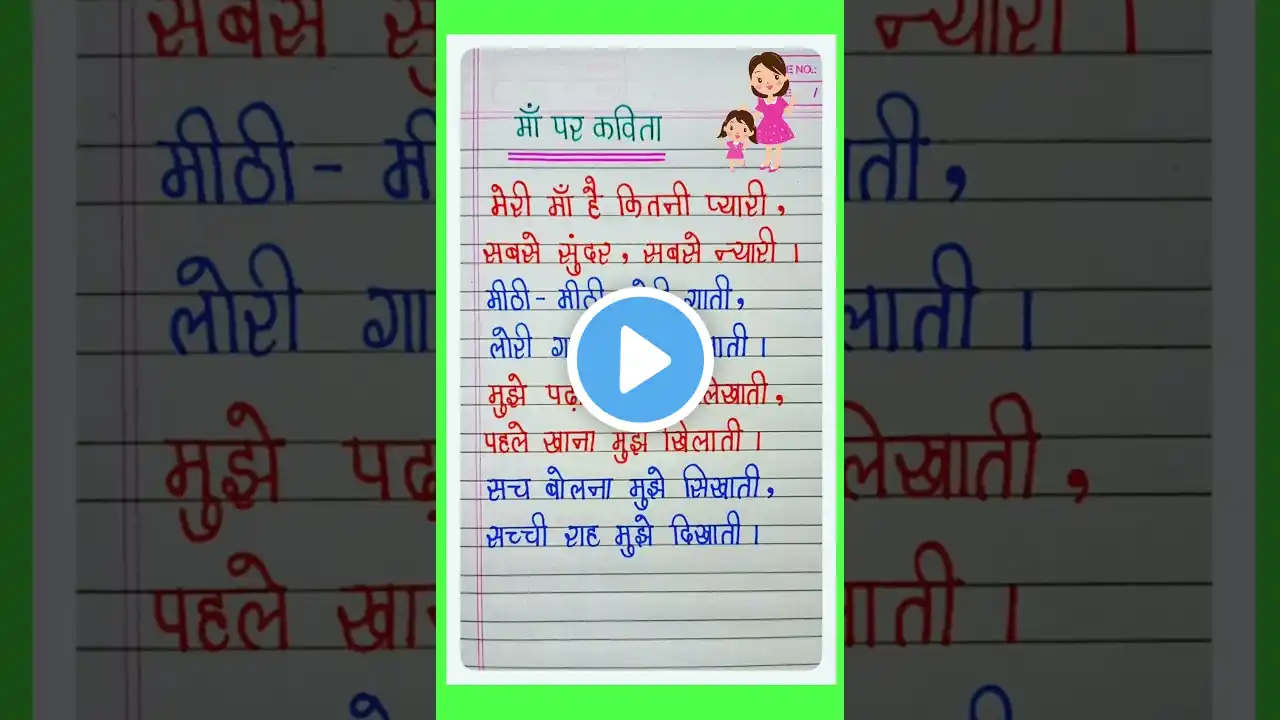 E NO.:
माँ पर कविता
मेरी माँ है कितनी प्यारी,
सबसे सुंदर, सबसे न्यारी ।
मीठी - मीठी गाती,
लोरी
मुझे
पहले खाना मुझे खिलाती ।
सच बोलना मुझे सिखाती,
सच्ची राह मुझे दिखाती ।